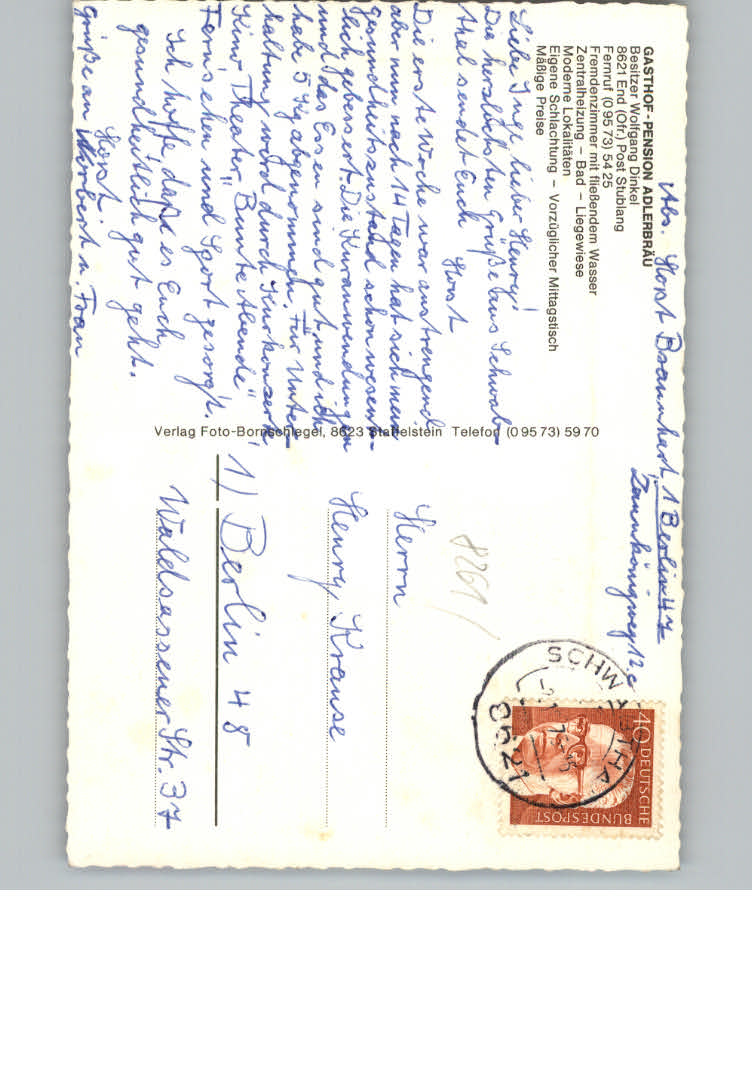 Abs. Horst Braunhart, 1 Berlin 47
Zaunkönigweg 12 c
GASTHOF-PENSION ADLERBRÄU
Besitzer Wolfgang Dinkel
8621 End (Ofr.) Post Stublang
Fernruf (0 95 73) 54 25
Fremdenzimmer mit fließendem Wasser
Zentralheizung – Bad – Liegewiese
Moderne Lokalitäten
Eigene Schlachtung – Vorzüglicher Mittagstisch
Mäßige Preise
Liebe Inge, lieber Henry!
Die herzlichsten Grüße aus Schwab-
thal sendet Euch Horst
Die erste Woche war anstrengend
aber nun nach 14 Tagen hat sich mein
gesundheitszustand schon wesent-
lich gebessert. Die Kuranwendungen
und das Essen sind gut und ich
habe 5 Kg abgenommen. Für Unter-
haltung wird durch Kurkonzert,
Kino, Theater, "Bunte Abende"
Fernsehen und Sport gesorgt.
Ich hoffe, daß es Euch
gesundheitlich gut geht.
Horst.
grüße an Norbert u. Frau
Verlag Foto-Bornschlegel, 8623 Staffelstein Telefon (0 95 73) 59 70
8261
Herrn
Henry Krause
1) Berlin 48
Waldsassener Str. 37
40 DEUTSCHE
BUNDESPOST
8621